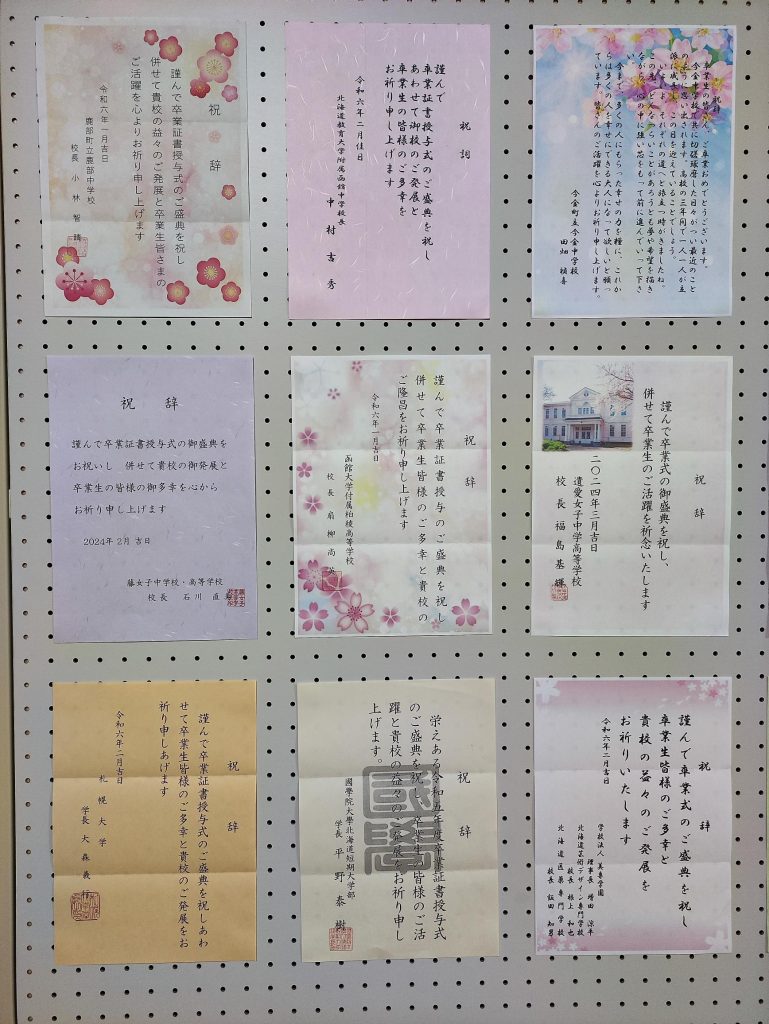 祝辞
謹んで卒業証書授与式のご盛典を祝し
併せて貴校の益々のご発展と卒業生皆さまの
ご活躍を心よりお祈り申し上げます
令和六年一月吉日
鹿部町立鹿部中学校
校長 小林智
祝詞
謹んで
卒業証書授与式のご盛典を祝し
あわせて御校のご発展と
卒業生の皆様のご多幸を
お祈り申し上げます
令和六年二月佳日
北海道教育大学附属函館中学校長
中村吉秀
祝辞
卒業生の皆さん、ご卒業おめでとうございます。
今金中学校で共に切磋琢磨した日々がつい最近のこと
のように思い出されます。高校の三年間で一人一人が立
派に成長し、この日を迎えていることでしょう。
いよいよ、それぞれの道へと旅立つ時がきましたね。
この先、どんなつらいことがあろうとも夢や希望を描き
ながら、心の中に強い芯をもって前に進んでいって下さ
い。
今まで、多くの人にもらった幸せの力を糧に、これか
らは多くの人を幸せにできる大人になって欲しいと願っ
ています。皆さんのご活躍を心よりお祈り申し上げます。
今金町立今金中学校
田畑
祝辞
謹んで卒業証書授与式の御盛典を
お祝いし 併せて貴校の御発展と
卒業生の皆様の御多幸を心から
お祈り申し上げます
2024年2月吉日
藤女子中学校・高等学校
校長 石川直
祝辞
謹んで卒業証書授与のご盛典を祝し
併せて卒業生皆様のご多幸と貴校の
ご隆昌をお祈り申し上げます
令和六年一月吉日
函館大学付属柏稜高等学校
校長 扇柳高英
祝辞
謹んで卒業式の御盛典を祝し、
併せて卒業生のご活躍を祈念いたします
二〇二四年三月吉日
遺愛女子中学高等学校
校長 福島基輝
祝辞
謹んで卒業証書授与式のご盛典を祝しあわ
せて卒業生皆様のご多幸と貴校のご発展をお
祈り申しあげます
令和六年二月吉日
札幌大学
学長 大森義行
祝辞
栄えある令和五年度卒業証書授与式
のご盛典を祝し、卒業生の皆様のご活
躍と貴校の益々のご発展をお祈り申し
上げます。
國學院大學北海道短期大学部
学長 平野泰樹
祝辞
謹んで卒業式のご盛典を祝し
卒業生皆様のご多幸と
貴校の益々のご発展を
お祈りいたします
令和六年二月吉日
学校法人 美専学園
理事長 増田涼平
北海道芸術デザイン専門学校
校長 根上和也
北海道医薬専門学校
校長 飯田知男